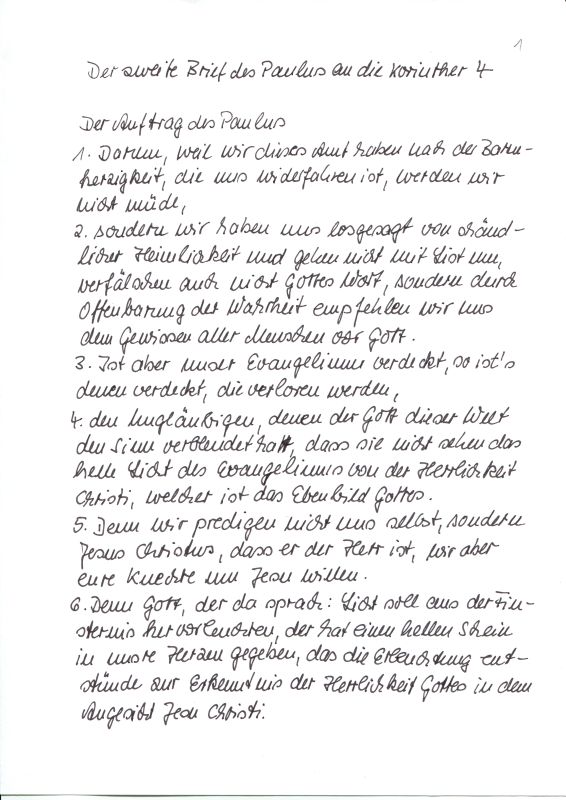 1
Der zweite Brief des Paulus an die Korinther 4
Der Auftrag des Paulus
1. Darum, weil wir dieses Amt haben nach der Barm-
herzigkeit, die uns widerfahren ist, werden wir
nicht müde,
2. sondern wir haben uns losgesagt von schänd-
licher Heimlichkeit und gehen nicht mit List um,
verfälschen auch nicht Gottes Wort, sondern durch
Offenbarung der Wahrheit empfehlen wir uns
dem Gewissen aller Menschen vor Gott.
3. Ist aber unser Evangelium verdeckt, so ist's
denen verdeckt, die verloren werden,
4. den Ungläubigen, denen der Gott dieser Welt
den Sinn verblendet hat, dass sie nicht sehen das
helle Licht des Evangeliums von der Herrlichkeit
Christi, welcher ist das Ebenbild Gottes.
5. Denn wir predigen nicht uns selbst, sondern
Jesus Christus, dass er der Herr ist, wir aber
eure Knechte um Jesu willen.
6. Denn Gott, der da sprach: Licht soll aus der Fin-
sternis hervorleuchten, der hat einen hellen Schein
in unsre Herzen gegeben, das die Erleuchtung ent-
stünde zur Erkenntnis der Herrlichkeit Gottes in dem
Angesicht Jesu Christi.